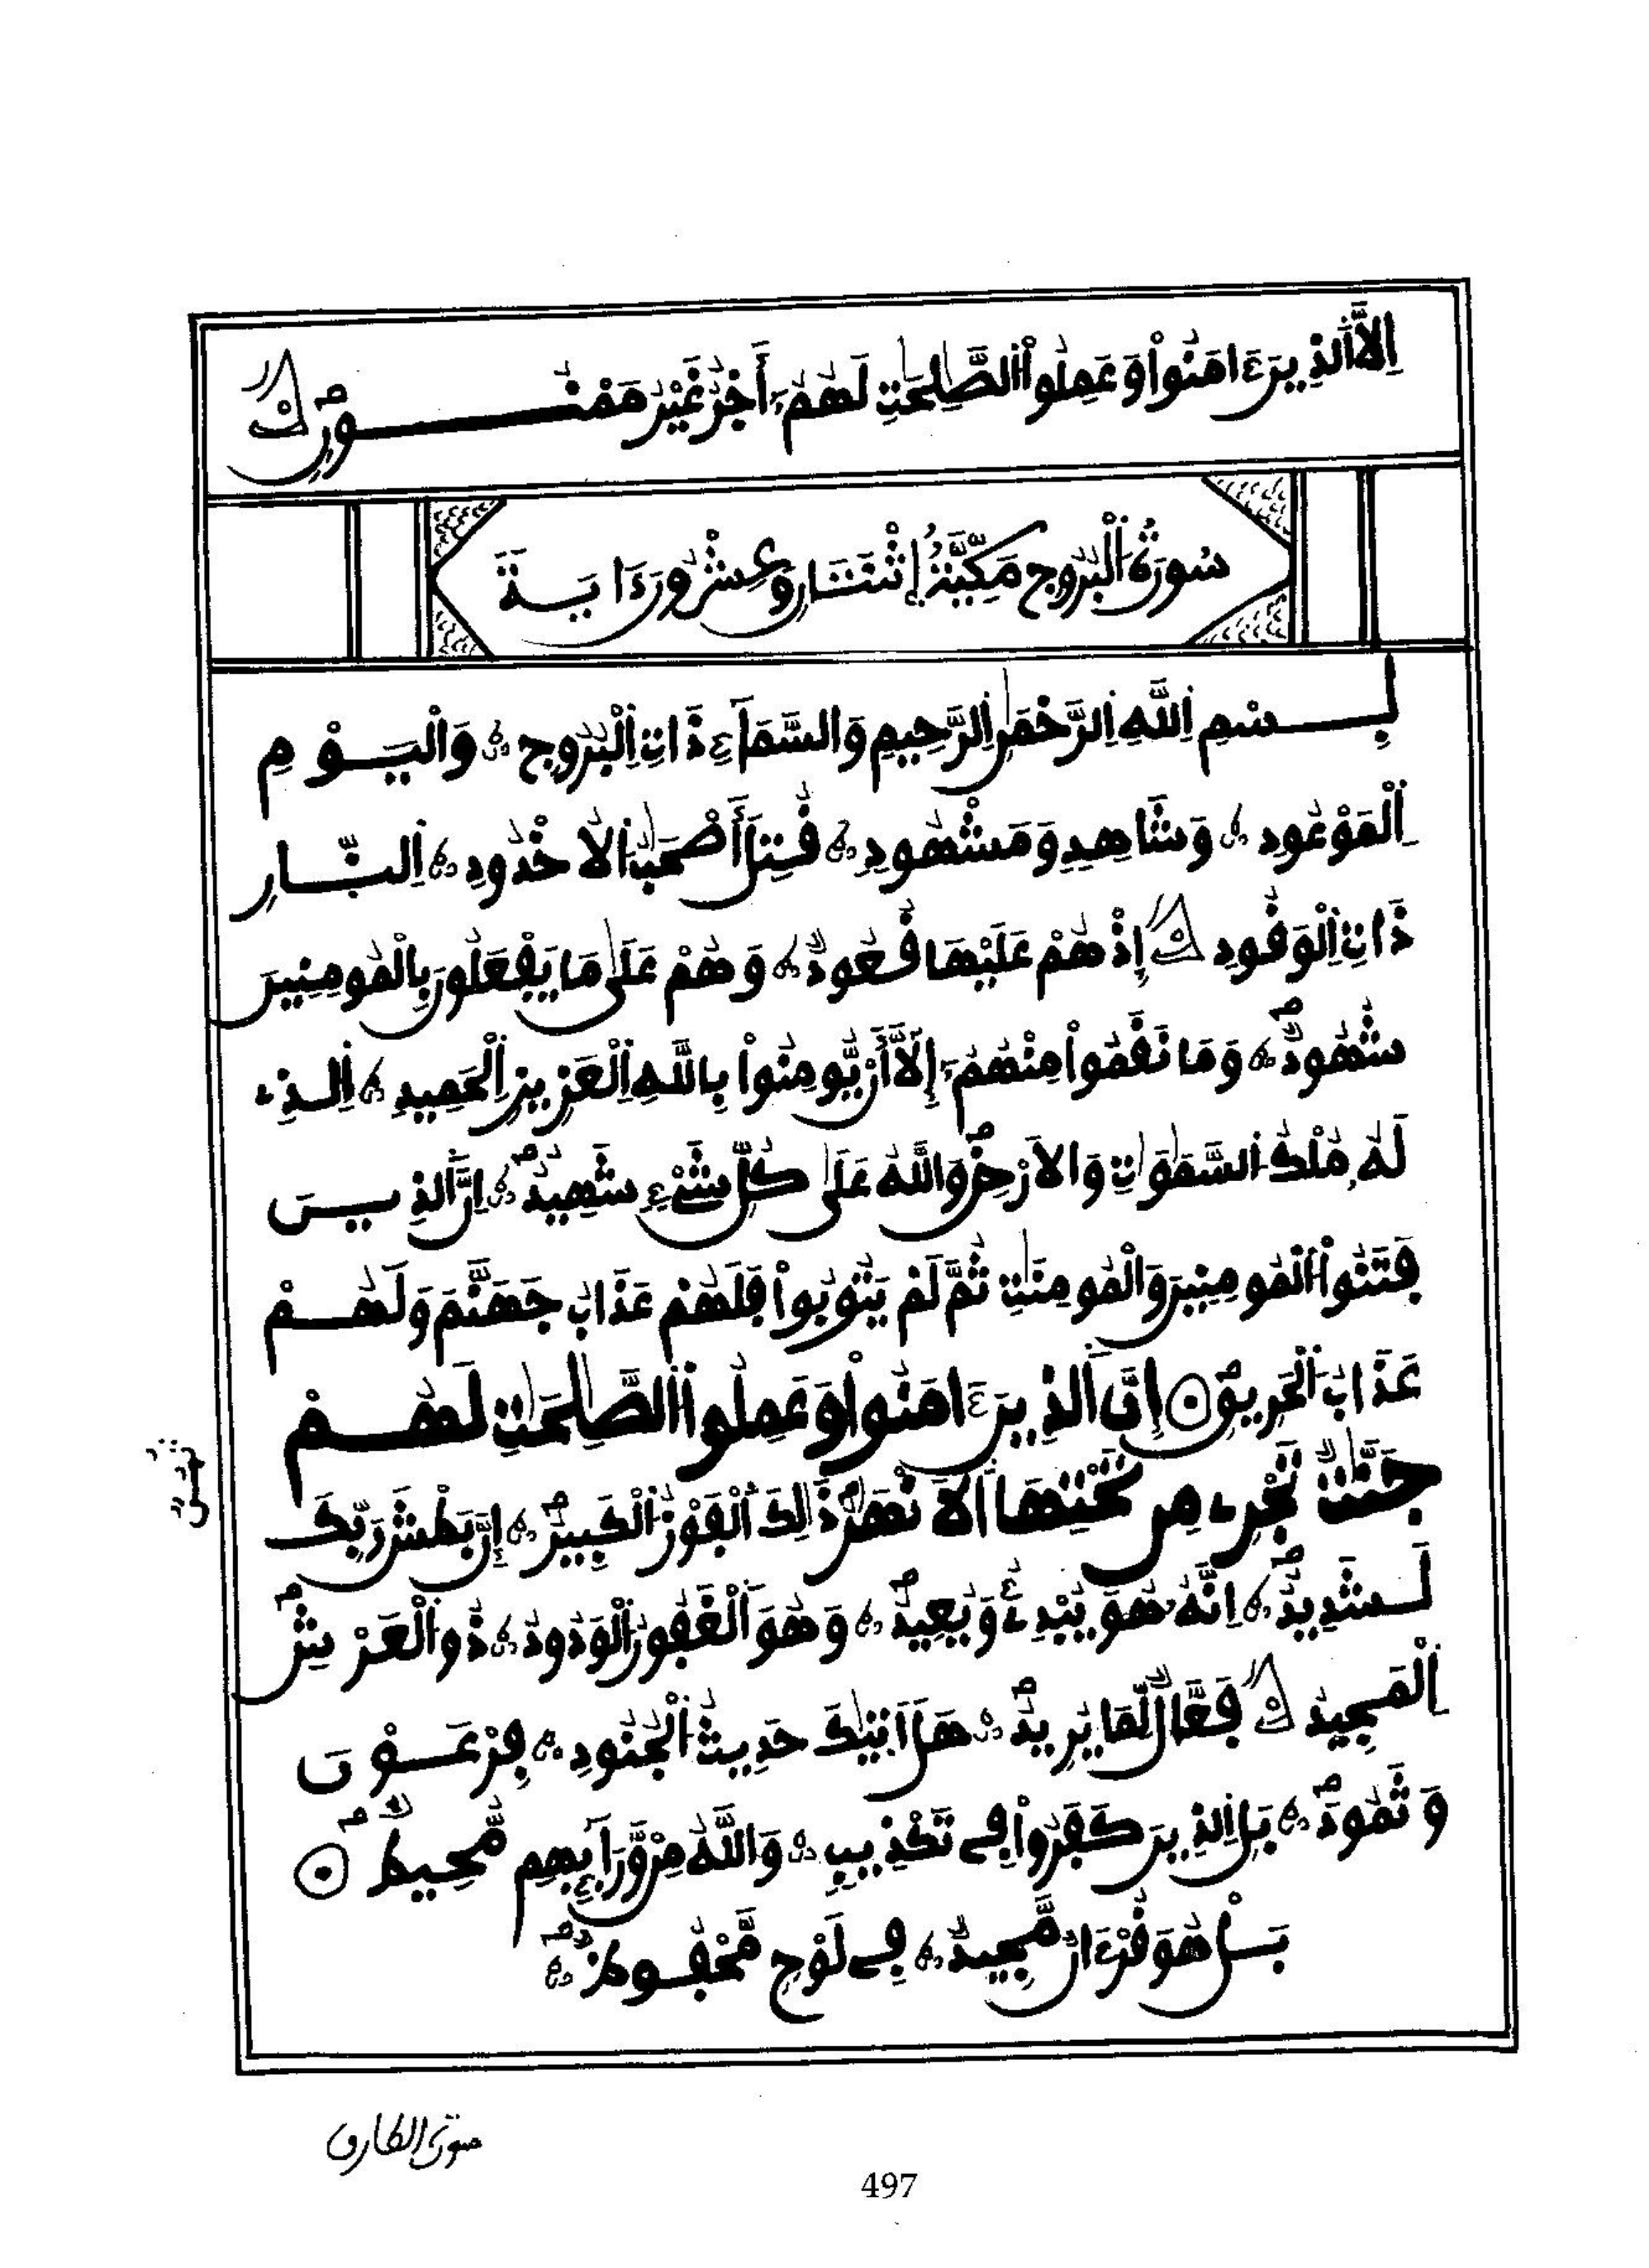 اِلَّا اَلذِينَ ءَامَنُواْ وَعَمِلُواْ اُلصَّٰلِحَٰتِ لَهُمُۥٓ أَجْرٌ غَيْرُ مَمْنُونٍۢ
سُورَةُ اُلْبُرُوجِ مَكِّيَّةٌ إِثْنَتَانِ وَعِشْرُونَ ءَايَةً
بِسْمِ اِللَّهِ اِلرَّحْمَٰنِ اِلرَّحِيمِ وَالسَّمَآءِ ذَاتِ اِلْبُرُوجِ وَالْيَوْمِ
اِلْمَوْعُودِ وَشَاهِدٍ وَمَشْهُودٍ قُتِلَ أَصْحَٰبُ اُلُاخْدُودِ اِلنَّارِ
ذَاتِ اِلْوَقُودِ إِذْ هُمْ عَلَيْهَا قُعُودٌ وَهُمْ عَلَىٰ مَا يَفْعَلُونَ بِالْمُومِنِينَ
شُهُودٌ وَمَا نَقَمُواْ مِنْهُمُۥٓ إِلَّآ أَنْ يُّومِنُواْ بِاللَّهِ اِلْعَزِيزِ اِلْحَمِيدِ اِلذِے
لَهُۥ مُلْكُ اُلسَّمَٰوَٰتِ وَالَارْضِ وَاللَّهُ عَلَىٰ كُلِّ شَےْءٍ شَهِيدٌ اِنَّ اَلذِينَ
فَتَنُواْ اُلْمُومِنِينَ وَالْمُومِنَٰتِ ثُمَّ لَمْ يَتُوبُواْ فَلَهُمْ عَذَابُ جَهَنَّمَ وَلَهُمْ
عَذَابُ اُلْحَرِيقِ إِنَّ اَلذِينَ ءَامَنُواْ وَعَمِلُواْ اُلصَّٰلِحَٰتِ لَهُمْ
جَنَّٰتٌ تَجْرِے مِن تَحْتِهَا اَلَانْهَٰرُ ذَٰلِكَ اَلْفَوْزُ اُلْكَبِيرُ إِنَّ بَطْشَ رَبِّكَ
لَشَدِيدٌ اِنَّهُۥ هُوَ يُبْدِئُ وَيُعِيدُ وَهُوَ اَلْغَفُورُ اُلْوَدُودُ ذُو اُلْعَرْشِ
اِلْمَجِيدُ فَعَّالٌ لِّمَا يُرِيدُ هَلَ اَتَيٰكَ حَدِيثُ اُلْجُنُودِ فِرْعَوْنَ
وَثَمُودَ بَلِ اِلذِينَ كَفَرُواْ فِے تَكْذِيبٍ وَاللَّهُ مِنْ وَّرَآئِهِم مُّحِيطٌ
بَلْ هُوَ قُرْءَانٌ مَّجِيدٌ فِے لَوْحٍ مَّحْفُوظٌ
سورة الطارق
497